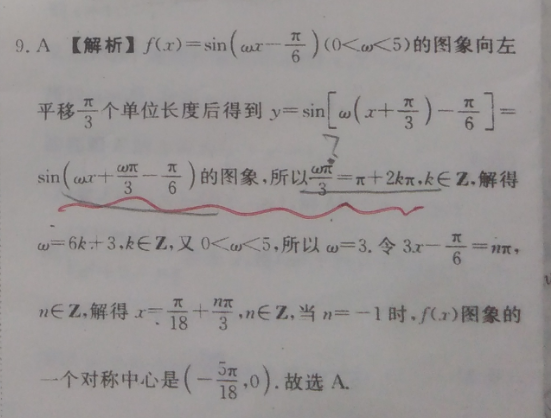 9. A 【解析】f(x)=sin(ωx-π/6)(0<ω<5)的图象向左
平移π/3个单位长度后得到 y=sin[ω(x+π/3)-π/6]=
sin(ωx+ωπ/3-π/6)的图象,所以ωπ/3=π+2kπ,k∈Z,解得
ω=6k+3,k∈Z,又 0<ω<5,所以 ω=3. 令 3x-π/6=nπ,
n∈Z,解得 x=π/18+nπ/3,n∈Z,当 n=-1 时,f(x)图象的
一个对称中心是(-5π/18,0).故选 A.